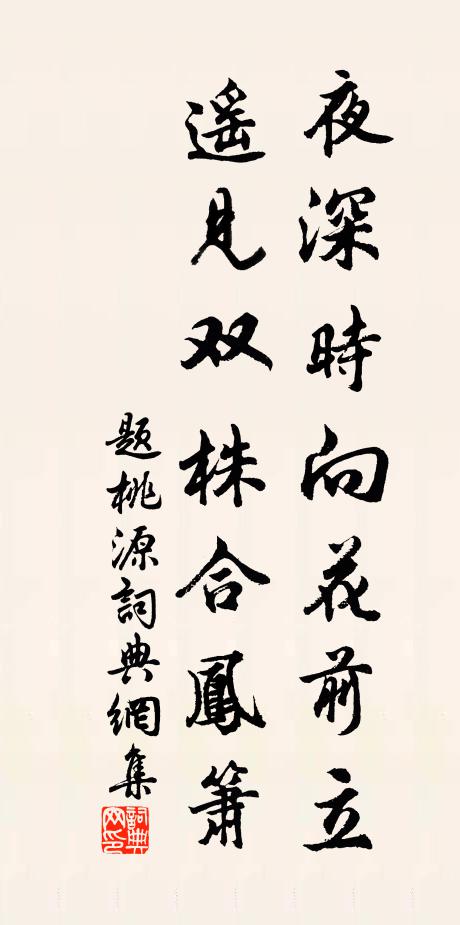 夜深時向花前立
遥見双株合鳳簫
題桃源詞典網集
詞典
网印